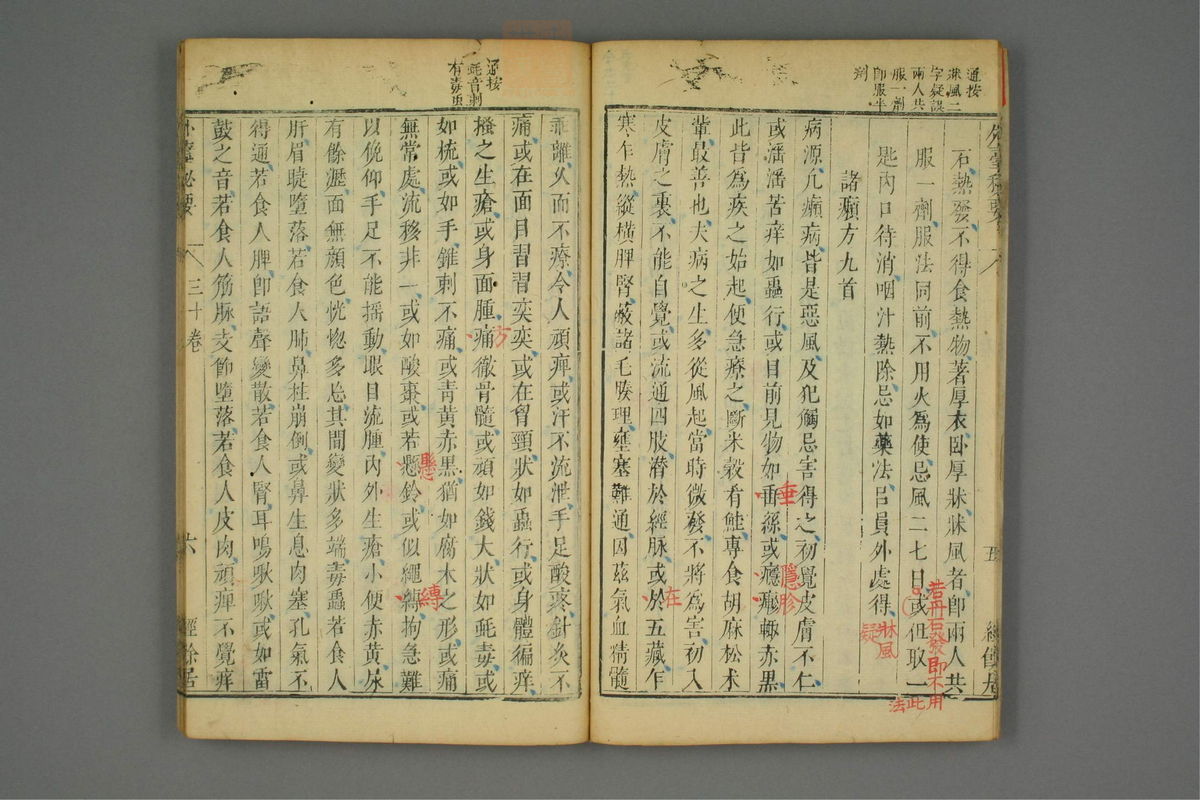 通按
牀風二
字疑誤
兩人共
服一劑
即服半
劑
石熱發不得食熱物著厚衣卧厚牀牀風者即兩人共
服一劑服法同前不用火為使忌風二七日或但取一
匙內口待消咽汁熱除忌如藥法呂員外處得
若丹石發即不用此法
牀風疑
諸癩方九首
病源凡癩病皆是惡風及犯觸忌害得之初覺皮膚不仁
或潘潘苦痒如蟲行或目前見物如垂絲或癮㾦輒赤黑
垂
隱胗
此皆為疾之始起便急療之斷米穀肴鮭專食胡麻松朮
輩最善也夫病之生多從風起當時微發不將為害初入
皮膚之裏不能自覺或流通四肢潛於經脉或於五藏乍
在
寒乍熱縱橫脾腎蔽諸毛腠理壅塞難通因茲氣血精髓
五
通按
蚝音刺
有毒虫
乖離久而不療令人頑痺或汗不流泄手足酸疼針灸不
痛或在面目習習奕奕或在胷頸狀如蟲行或身體徧痒
搔之生瘡或身面腫痛徹骨髓或頑如錢大狀如蚝毒或
方
如梳或如手錐刺不痛或青黃赤黑猶如腐木之形或痛
無常處流移非一或如酸棗或若懸鈴或似繩縛拘急難
懸
縛
以俛仰手足不能搖動眼目流腫內外生瘡小便赤黃尿
有餘瀝面無顔色恍惚多忘其間變狀多端毒蟲若食人
肝眉睫墮落若食人肺鼻柱崩倒或鼻生息肉塞孔氣不
得通若食人脾即語聲變散若食人腎耳鳴啾啾或如雷
鼓之音若食人筋脉支節墮落若食人皮肉頑痺不覺痒
外臺秘要
三十卷
六
經餘居